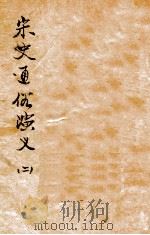 宋史通俗演义(二)